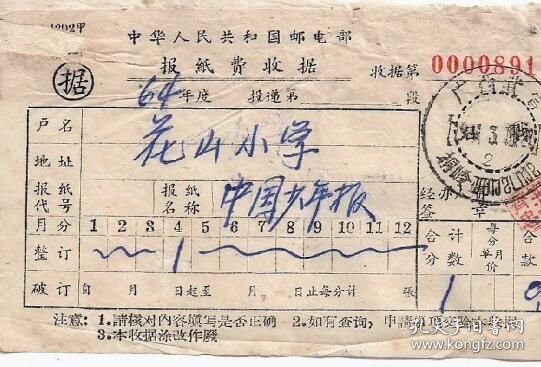 1202甲
中华人民共和国邮电部
报纸费收据 收据第 0000891
据
64 年度 投递第 段
户名 花山小学
地址
报纸代号 报纸名称 中国少年报
月分 1 2 3 4 5 6 7 8 9 10 11 12 合计分数 每分每月单价 合款
整订 1 1
破订 自 月 日起至 月 日止每分计 张
注意: 1.請核对内容填写是否正确 2.如有查询,申請
3.本收据涂改作廢
孔夫子旧书网
www.kongfz.com